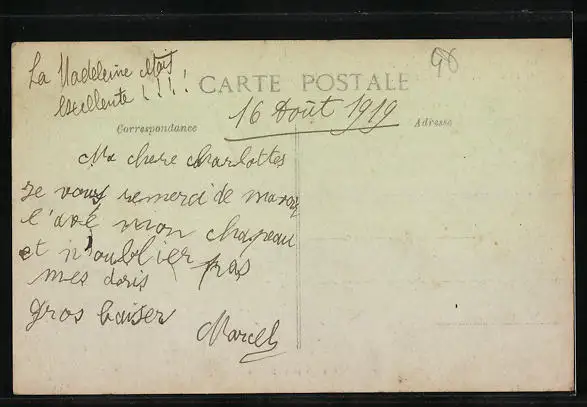 La Madeleine étais
excellente !!!!
98
CARTE POSTALE
16 Août 1919
Correspondance
Adresse
Ma chere Charlottes
Je vous remerci de
l'avé mon chapeau
et n'oublier pas
mes
gros baiser
Marcel